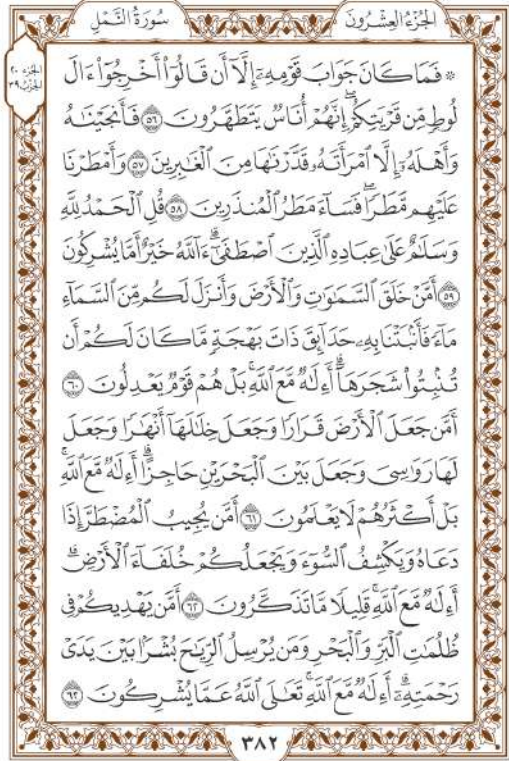 الجزء العشرون
سورة النمل
الجزء ٢٠
الحزب ٣٩
۞ فَمَا كَانَ جَوَابَ قَوْمِهِۦٓ إِلَّآ أَن قَالُوٓا۟ أَخْرِجُوٓا۟ ءَالَ
لُوطٍ مِّن قَرْيَتِكُمْ ۖ إِنَّهُمْ أُنَاسٌ يَتَطَهَّرُونَ ٥٦ فَأَنجَيْنَـٰهُ
وَأَهْلَهُۥٓ إِلَّا ٱمْرَأَتَهُۥ قَدَّرْنَـٰهَا مِنَ ٱلْغَـٰبِرِينَ ٥٧ وَأَمْطَرْنَا
عَلَيْهِم مَّطَرًا ۖ فَسَآءَ مَطَرُ ٱلْمُنذَرِينَ ٥٨ قُلِ ٱلْحَمْدُ لِلَّهِ
وَسَلَـٰمٌ عَلَىٰ عِبَادِهِ ٱلَّذِينَ ٱصْطَفَىٰٓ ۗ ءَآللَّهُ خَيْرٌ أَمَّا يُشْرِكُونَ
٥٩ أَمَّنْ خَلَقَ ٱلسَّمَـٰوَٰتِ وَٱلْأَرْضَ وَأَنزَلَ لَكُم مِّنَ ٱلسَّمَآءِ
مَآءً فَأَنۢبَتْنَا بِهِۦ حَدَآئِقَ ذَاتَ بَهْجَةٍ مَّا كَانَ لَكُمْ أَن
تُنۢبِتُوا۟ شَجَرَهَآ ۗ أَءِلَـٰهٌ مَّعَ ٱللَّهِ ۚ بَلْ هُمْ قَوْمٌ يَعْدِلُونَ ٦٠
أَمَّن جَعَلَ ٱلْأَرْضَ قَرَارًا وَجَعَلَ خِلَـٰلَهَآ أَنْهَـٰرًا وَجَعَلَ
لَهَا رَوَٰسِىَ وَجَعَلَ بَيْنَ ٱلْبَحْرَيْنِ حَاجِزًا ۗ أَءِلَـٰهٌ مَّعَ ٱللَّهِ ۚ
بَلْ أَكْثَرُهُمْ لَا يَعْلَمُونَ ٦١ أَمَّن يُجِيبُ ٱلْمُضْطَرَّ إِذَا
دَعَاهُ وَيَكْشِفُ ٱلسُّوٓءَ وَيَجْعَلُكُمْ خُلَفَآءَ ٱلْأَرْضِ ۗ
أَءِلَـٰهٌ مَّعَ ٱللَّهِ ۚ قَلِيلًا مَّا تَذَكَّرُونَ ٦٢ أَمَّن يَهْدِيكُمْ فِى
ظُلُمَـٰتِ ٱلْبَرِّ وَٱلْبَحْرِ وَمَن يُرْسِلُ ٱلرِّيَـٰحَ بُشْرًۢا بَيْنَ يَدَىْ
رَحْمَتِهِۦٓ ۗ أَءِلَـٰهٌ مَّعَ ٱللَّهِ ۚ تَعَـٰلَى ٱللَّهُ عَمَّا يُشْرِكُونَ ٦٣
٣٨٢